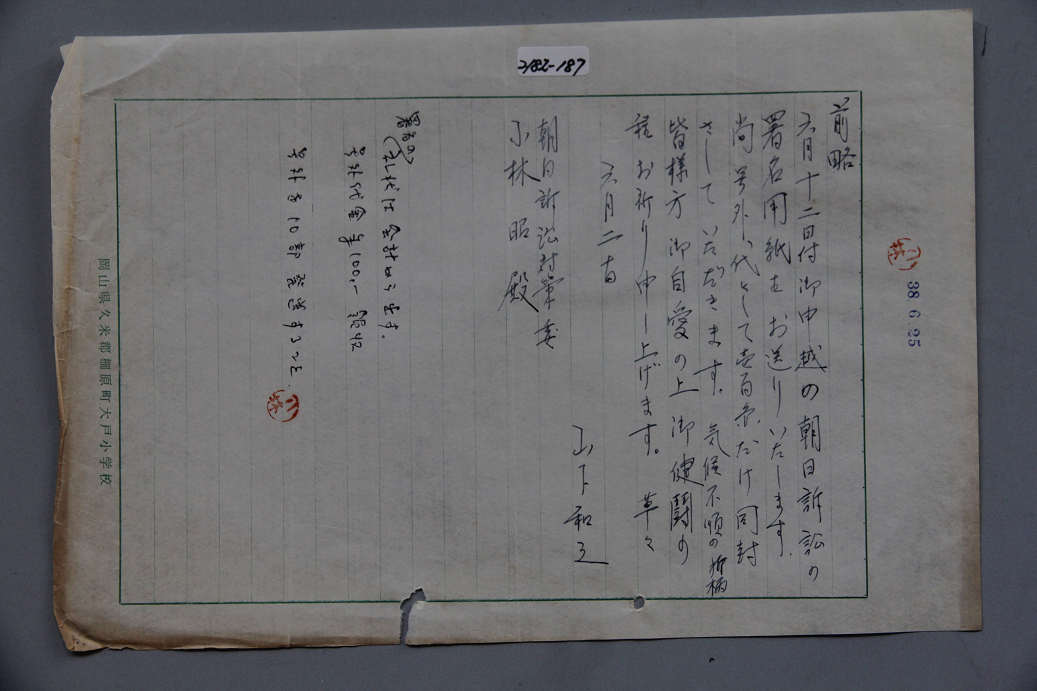 2182-187
38 6.25
小林
前略
六月十二日付御申越の朝日訴訟の
署名用紙をお送りいたします。
尚号外代として壱百円だけ同封
さしていただきます。気候不順の折柄
皆様方御自愛の上御健闘の
程お祈り申し上げます。 草々
六月二十日
山下和子
朝日訴訟対策委
小林昭殿
署名の礼状は
号外代金¥100,- 領収
号外を10部
小林
岡山県久米郡柵原町大戸小学校